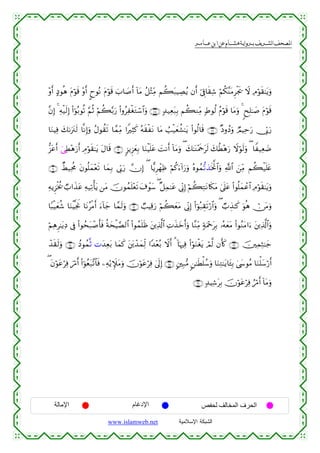 المصحف الشريف برواية هشام عن ابن عامر
وَيَٰقَوْمِ لَا يَجْرِمَنَّكُمْ شِقَاقِىٓ أَن يُصِيبَكُم مِّثْلُ مَآ أَصَابَ قَوْمَ نُوحٍ أَوْ قَوْمَ هُودٍ أَوْ
قَوْمَ صَٰلِحٍ ۚ وَمَا قَوْمُ لُوطٍ مِّنكُم بِبَعِيدٍ ۝ وَٱسْتَغْفِرُوا۟ رَبَّكُمْ ثُمَّ تُوبُوٓا۟ إِلَيْهِ ۚ إِنَّ
رَبِّى رَحِيمٌ وَدُودٌ ۝ قَالُوا۟ يَٰشُعَيْبُ مَا نَفْقَهُ كَثِيرًا مِّمَّا تَقُولُ وَإِنَّا لَنَرَىٰكَ فِينَا
ضَعِيفًا ۖ وَلَوْلَا رَهْطُكَ لَرَجَمْنَٰكَ ۖ وَمَآ أَنتَ عَلَيْنَا بِعَزِيزٍ ۝ قَالَ يَٰقَوْمِ أَرَهْطِى أَعَزُّ
عَلَيْكُم مِّنَ ٱللَّهِ وَٱتَّخَذتُّمُوهُ وَرَآءَكُمْ ظِهْرِيًّا ۖ إِنَّ رَبِّى بِمَا تَعْمَلُونَ مُحِيطٌ ۝
وَيَٰقَوْمِ ٱعْمَلُوا۟ عَلَىٰ مَكَانَتِكُمْ إِنِّى عَٰمِلٌ ۖ سَوْفَ تَعْلَمُونَ مَن يَأْتِيهِ عَذَابٌ يُخْزِيهِ
وَمَنْ هُوَ كَٰذِبٌ ۖ وَٱرْتَقِبُوٓا۟ إِنِّى مَعَكُمْ رَقِيبٌ ۝ وَلَمَّا جَآءَ أَمْرُنَا نَجَّيْنَا شُعَيْبًا
وَٱلَّذِينَ ءَامَنُوا۟ مَعَهُۥ بِرَحْمَةٍ مِّنَّا وَأَخَذَتِ ٱلَّذِينَ ظَلَمُوا۟ ٱلصَّيْحَةُ فَأَصْبَحُوا۟ فِى دِيَٰرِهِمْ
جَٰثِمِينَ ۝ كَأَن لَّمْ يَغْنَوْا۟ فِيهَآ ۗ أَلَا بُعْدًا لِّمَدْيَنَ كَمَا بَعِدَت ثَّمُودُ ۝ وَلَقَدْ
أَرْسَلْنَا مُوسَىٰ بِـَٔايَٰتِنَا وَسُلْطَٰنٍ مُّبِينٍ ۝ إِلَىٰ فِرْعَوْنَ وَمَلَإِيْهِۦ فَٱتَّبَعُوٓا۟ أَمْرَ فِرْعَوْنَ ۖ
وَمَآ أَمْرُ فِرْعَوْنَ بِرَشِيدٍ ۝
الحرف المخالف لحفص
الإدغام
الإمالة
الشبكة الإسلامية www.islamweb.net